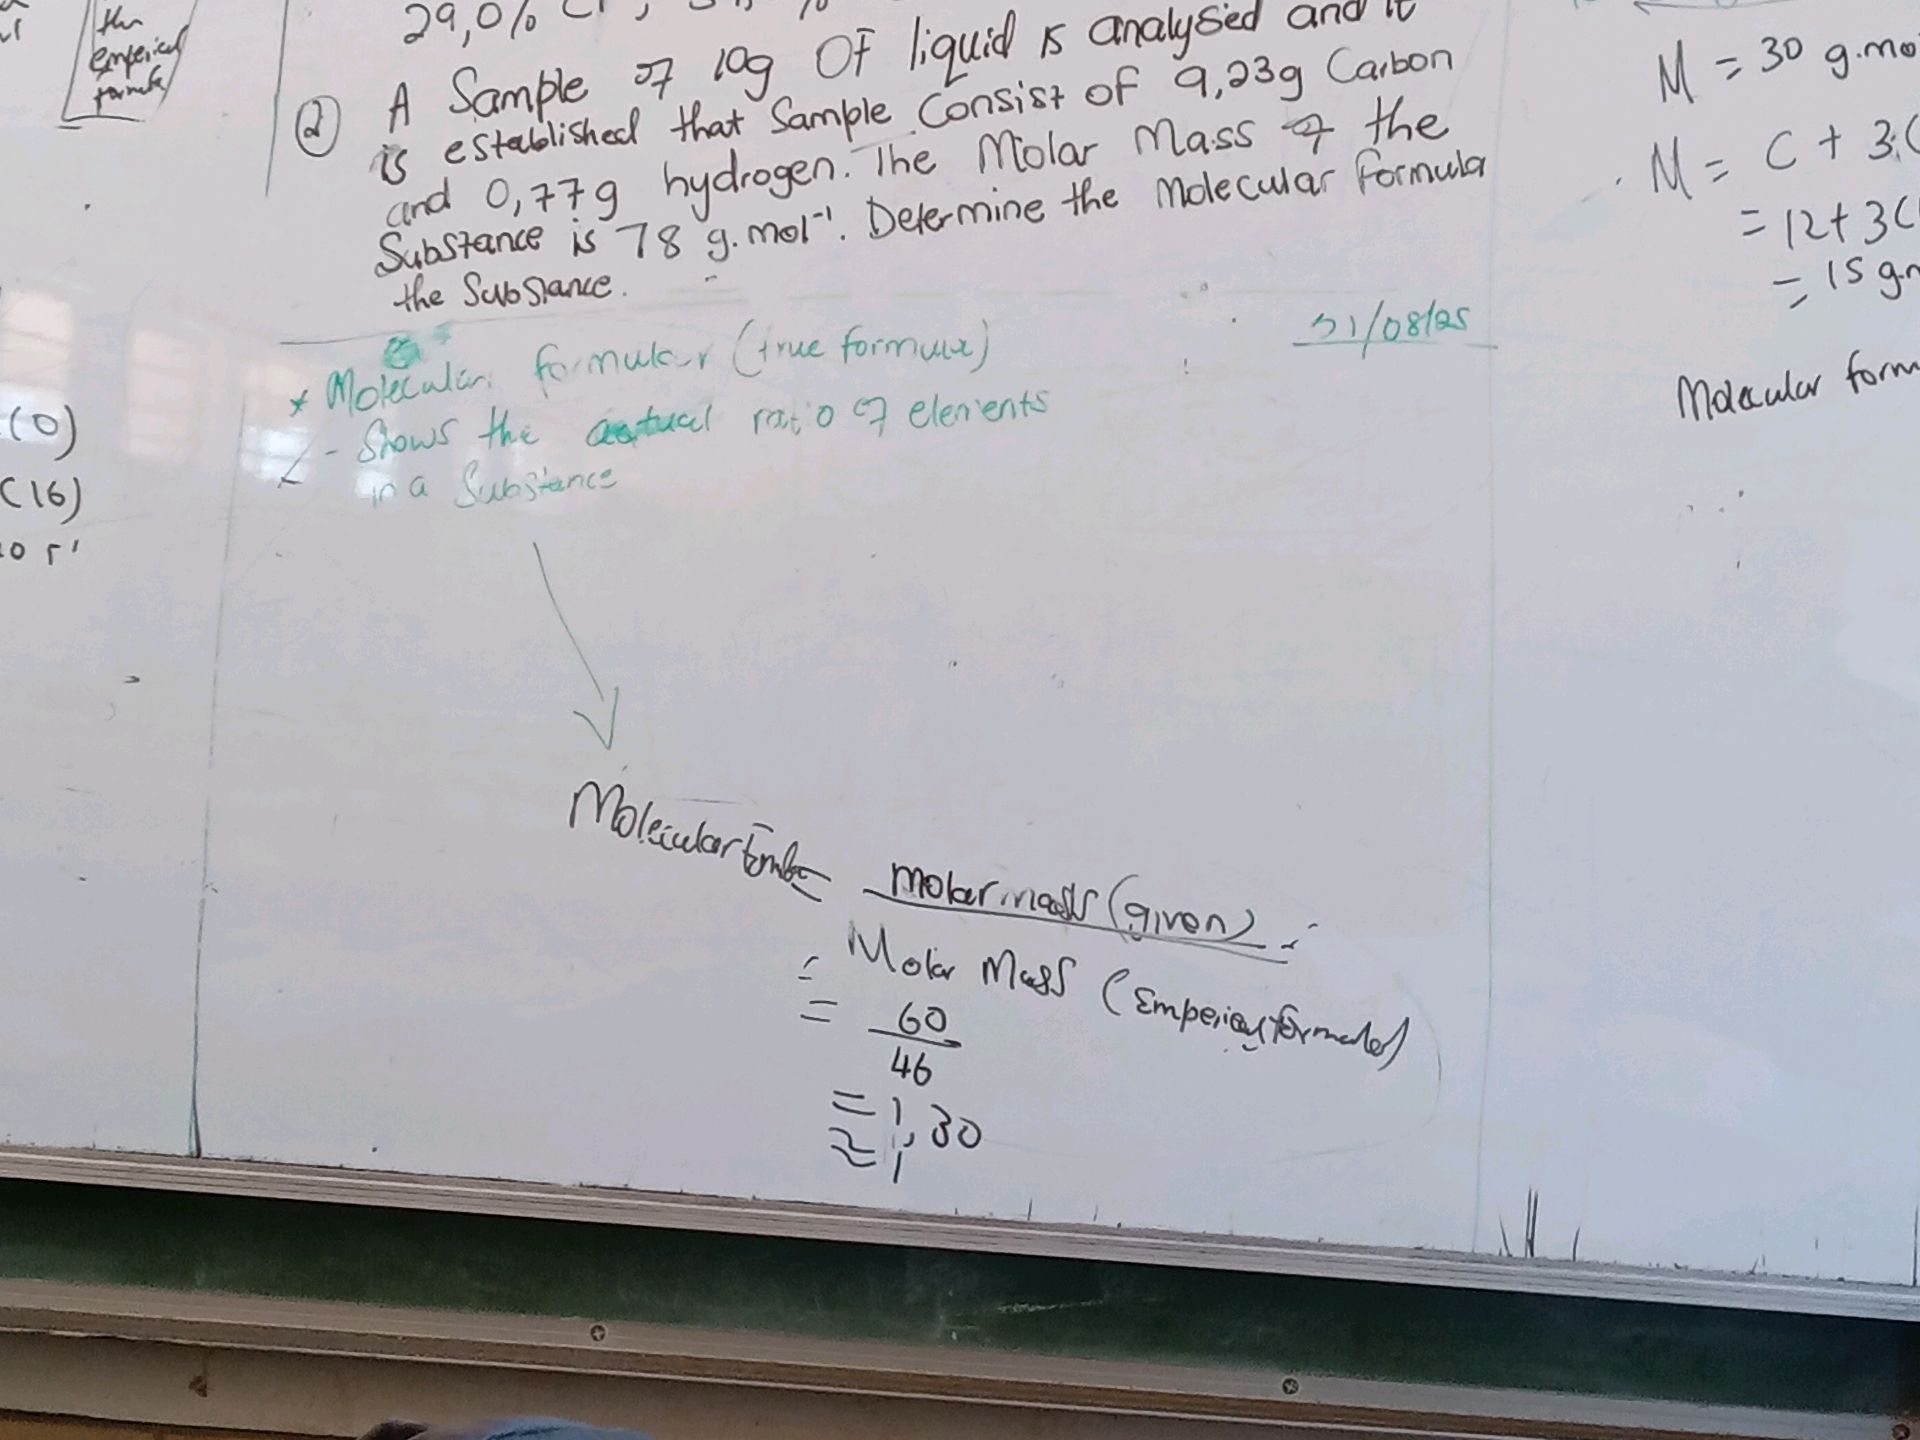 the
emperical
formula
29,0%
② A Sample of 10g OF liquid is analysed and it
is established that Sample Consist of 9,23g Carbon
and 0,77g hydrogen. The Molar Mass of the
Substance is 78 g.mol⁻¹. Determine the Molecular formula
the Substance.
31/08/25
* Molecular formular (true formula)
- Shows the actual ratio of elements
in a Substance
Molecular = molar mass (given)
Molar Mass (Emperical formula)
= 60
46
= 1,30
≈ 1
(0)
(16)
M = 30 g.mo
M = C + 3(
= 12 + 3(
= 15 g.
Molecular form